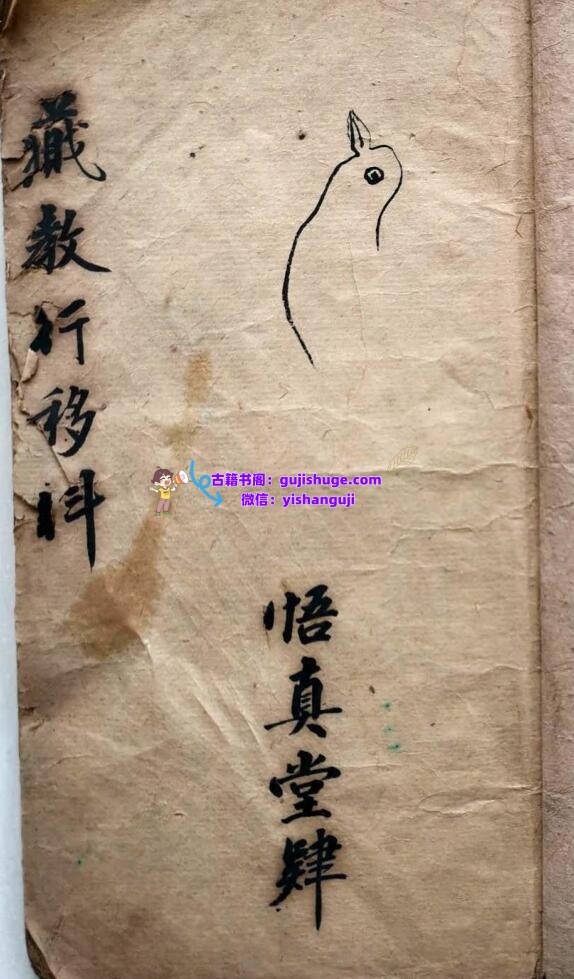 教行移科
悟真堂肄
古籍书阁：gujishuge.com
微信：yishanguji